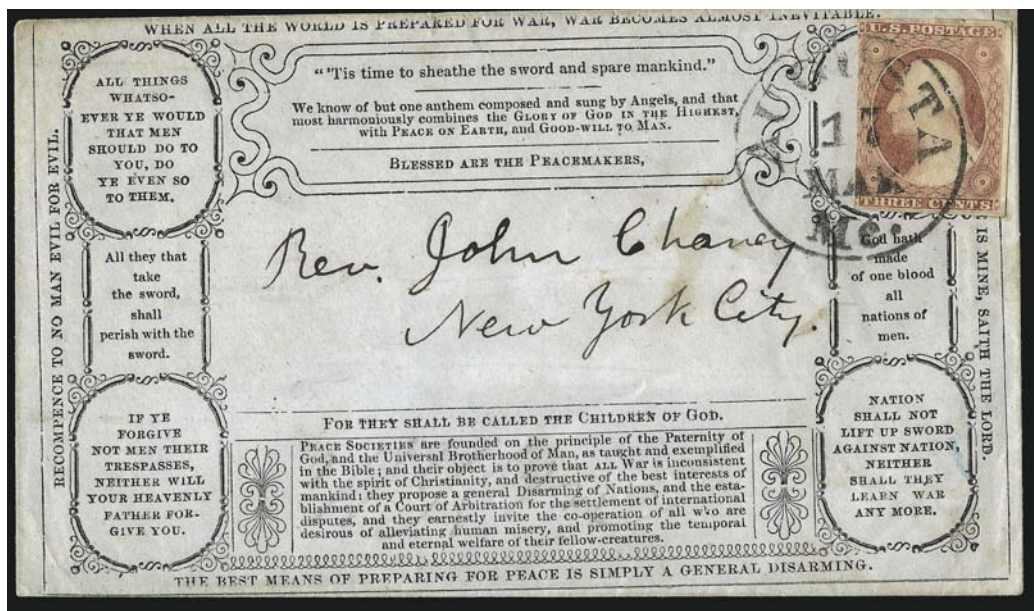 WHEN ALL THE WORLD IS PREPARED FOR WAR, WAR BECOMES ALMOST INEVITABLE.
RECOMPENCE TO NO MAN EVIL FOR EVIL.
ALL THINGS
WHATSO-
EVER YE WOULD
THAT MEN
SHOULD DO TO
YOU, DO
YE EVEN SO
TO THEM.
All they that
take
the sword,
shall
perish with the
sword.
IF YE
FORGIVE
NOT MEN THEIR
TRESPASSES,
NEITHER WILL
YOUR HEAVENLY
FATHER FOR-
GIVE YOU.
"'Tis time to sheathe the sword and spare mankind."
We know of but one anthem composed and sung by Angels, and that
most harmoniously combines the GLORY OF GOD IN THE HIGHEST,
with PEACE ON EARTH, and GOOD-WILL TO MAN.
BLESSED ARE THE PEACEMAKERS,
Rev. John Chaney
New York City.
FOR THEY SHALL BE CALLED THE CHILDREN OF GOD.
PEACE SOCIETIES are founded on the principle of the Paternity of
God, and the Universal Brotherhood of Man, as taught and exemplified
in the Bible; and their object is to prove that ALL War is inconsistent
with the spirit of Christianity, and destructive of the best interests of
mankind: they propose a general Disarming of Nations, and the esta-
blishment of a Court of Arbitration for the settlement of international
disputes, and they earnestly invite the co-operation of all who are
desirous of alleviating human misery, and promoting the temporal
and eternal welfare of their fellow-creatures.
U.S. POSTAGE
THREE CENTS
AUGUSTA
MAR
Me.
God hath
made
of one blood
all
nations of
men.
NATION
SHALL NOT
LIFT UP SWORD
AGAINST NATION,
NEITHER
SHALL THEY
LEARN WAR
ANY MORE.
IS MINE, SAITH THE LORD.
THE BEST MEANS OF PREPARING FOR PEACE IS SIMPLY A GENERAL DISARMING.